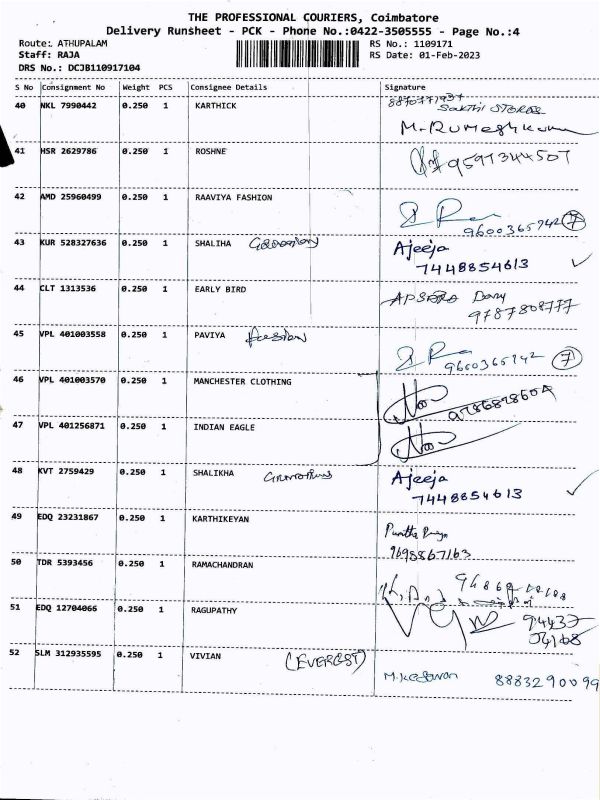 THE PROFESSIONAL COURIERS, Coimbatore
Delivery Runsheet - PCK - Phone No.:0422-3505555 - Page No.:4
Route: ATHUPALAM RS No.: 1109171
Staff: RAJA RS Date: 01-Feb-2023
DRS No.: DCJB110917104
S No Consignment No Weight PCS Consignee Details Signature
40 NKL 7990442 0.250 1 KARTHICK 8870771937
Sakthi STORES
M. Rumeshkumar
41 HSR 2629786 0.250 1 ROSHNE 9597344507
42 AMD 25960499 0.250 1 RAAVIYA FASHION
9600365742 7
43 KUR 528327636 0.250 1 SHALIHA Ajeeja
7448854613
44 CLT 1313536 0.250 1 EARLY BIRD APSERA
9787808777
45 VPL 401003558 0.250 1 PAVIYA Fassion
9600365742 7
46 VPL 401003570 0.250 1 MANCHESTER CLOTHING
47 VPL 401256871 0.250 1 INDIAN EAGLE
48 KVT 2759429 0.250 1 SHALIKHA Ajeeja
7448854613
49 EDQ 23231867 0.250 1 KARTHIKEYAN Punitha Priya
9698867163
50 TDR 5393456 0.250 1 RAMACHANDRAN
51 EDQ 12704066 0.250 1 RAGUPATHY 94437
52 SLM 312935595 0.250 1 VIVIAN (EVEREST)
M.Kesavan 8883290099